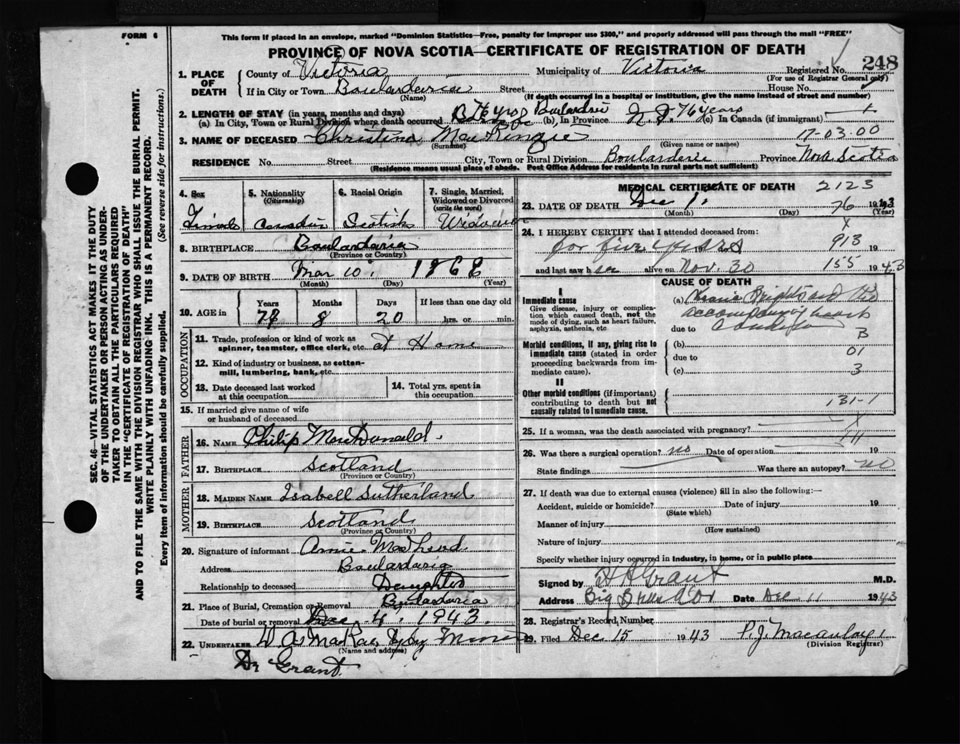 FORM 6
This form if placed in an envelope, marked "Dominion Statistics—Free, penalty for improper use $300," and properly addressed will pass through the mail "FREE"
PROVINCE OF NOVA SCOTIA—CERTIFICATE OF REGISTRATION OF DEATH
248
1. PLACE OF DEATH
County of Victoria Municipality of Victoria Registered No.
(For use of Registrar General only)
If in City or Town Boularderia Street House No.
(Name) (If death occurred in a hospital or institution, give the name instead of street and number)
2. LENGTH OF STAY (in years, months and days)
(a) In City, Town or Rural Division where death occurred 76 yrs Boulardrie (b) In Province N.S. 76 years (c) In Canada (if immigrant)
3. NAME OF DECEASED Christina MacKenzie 17-03.00
(Surname) (Given name or names)
RESIDENCE No. Street City, Town or Rural Division Boularderie Province Nova Scotia
(Residence means usual place of abode. Post Office Address for residents in rural parts not sufficient)
4. Sex
Female
5. Nationality (Citizenship)
Canadian
6. Racial Origin
Scotish
7. Single, Married, Widowed or Divorced (write the word)
Widowed
8. BIRTHPLACE Boulardaria
(Province or Country)
9. DATE OF BIRTH Mar 10, 1868
(Month) (Day) (Year)
10. AGE
Years Months Days If less than one day old
8 20 hrs. or min.
OCCUPATION
11. Trade, profession or kind of work as spinner, teamster, office clerk, etc. at Home
12. Kind of industry or business, as cotton-mill, lumbering, bank, etc.
13. Date deceased last worked at this occupation
14. Total yrs. spent in this occupation
15. If married give name of wife or husband of deceased
FATHER
16. NAME Philip MacDonald
17. BIRTHPLACE Scotland
(Province or Country)
MOTHER
18. MAIDEN NAME Isabell Sutherland
19. BIRTHPLACE Scotland
(Province or Country)
20. Signature of informant Annie MacLeod
Address Boulardaria
Relationship to deceased Daughter
21. Place of Burial, Cremation or Removal Boulardaria
Date of burial or removal Dec 4, 1943.
22. UNDERTAKER
(Name and address)
Dr Grant
MEDICAL CERTIFICATE OF DEATH 2123
23. DATE OF DEATH Dec 1, 76 1943
(Month) (Day) (Year)
24. I HEREBY CERTIFY that I attended deceased from: X
for five years 913 19
and last saw her alive on Nov. 30 155 1943
CAUSE OF DEATH
I
Immediate cause
Give disease, injury or complication which caused death, not the mode of dying, such as heart failure, asphyxia, asthenia, etc
(a)
accompanying heart
due to condition
Morbid conditions, if any, giving rise to immediate cause (stated in order proceeding backwards from immediate cause).
(b) B
due to 01
(c) 3
II
Other morbid conditions (if important) contributing to death but not causally related to immediate cause.
131-1
25. If a woman, was the death associated with pregnancy? X
26. Was there a surgical operation? no Date of operation 19
State findings Was there an autopsy? no
27. If death was due to external causes (violence) fill in also the following:—
Accident, suicide or homicide? Date of injury 19
(State which)
Manner of injury
(How sustained)
Nature of injury
Specify whether injury occurred in industry, in home, or in public place
Signed by Grant M.D.
Address Big Bras d'Or Date Dec 11 1943
28. Registrar's Record, Number
29. Filed Dec 15 1943 P.J. Macaulay
(Division Registrar)
SEC. 46—VITAL STATISTICS ACT MAKES IT THE DUTY
OF THE UNDERTAKER OR PERSON ACTING AS UNDERTAKER
TO OBTAIN ALL THE PARTICULARS REQUIRED
IN THE "CERTIFICATE OF REGISTRATION OF DEATH"
AND TO FILE THE SAME WITH THE DIVISION REGISTRAR WHO SHALL ISSUE THE BURIAL PERMIT.
WRITE PLAINLY WITH UNFADING INK. THIS IS A PERMANENT RECORD.
Every item of information should be carefully supplied. (See reverse side for instructions.)